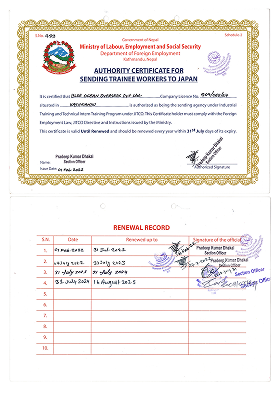 S.No. 492
Schedule-3
Government of Nepal
Ministry of Labour, Employment and Social Security
Department of Foreign Employment
Kathmandu, Nepal
AUTHORITY CERTIFICATE FOR
SENDING TRAINEE WORKERS TO JAPAN
It is certified that BLUE OCEAN OVERSEAS PVT. LTD. Company Licence No.
situated in KATHMANDU is authorised as being the sending agency under Industrial
Training and Technical Intern Training Program under JITCO. This Certificate holder must comply with the Foreign
Employment Law, JITCO Directive and Instructions issued by the Ministry.
This certificate is valid Until Renewed and should be renewed every year within 31st July days of its expiry.
Pradeep Kumar Dhakal
Name Section Officer
Issue Date: 01 Feb. 2022
Pradeep Kumar Dhakal
Section Officer
Authorized Signature
RENEWAL RECORD
S.N. Date Renewed up to Signature of the official
1. 01 Feb. 2022 31 Jul. 2022
Pradeep Kumar Dhakal
Section Officer
2. 2022 31 July 2023
Pradeep Kumar Dhakal
Section Officer
3. 31 July 2023 31 July 2024
Section Officer
4. 31 July 2024 16 August 2025
Section Officer
5.
6.
7.
8.
9.
10.